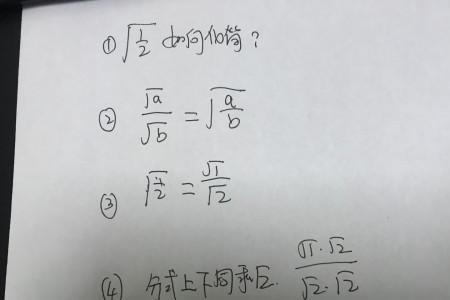 ① √(1/2) 如何化简?
② √a/√b = √(a/b)
③ √(1/2) = √1/√2
(4) 分式上下同乘√2. √1·√2/√2·√2